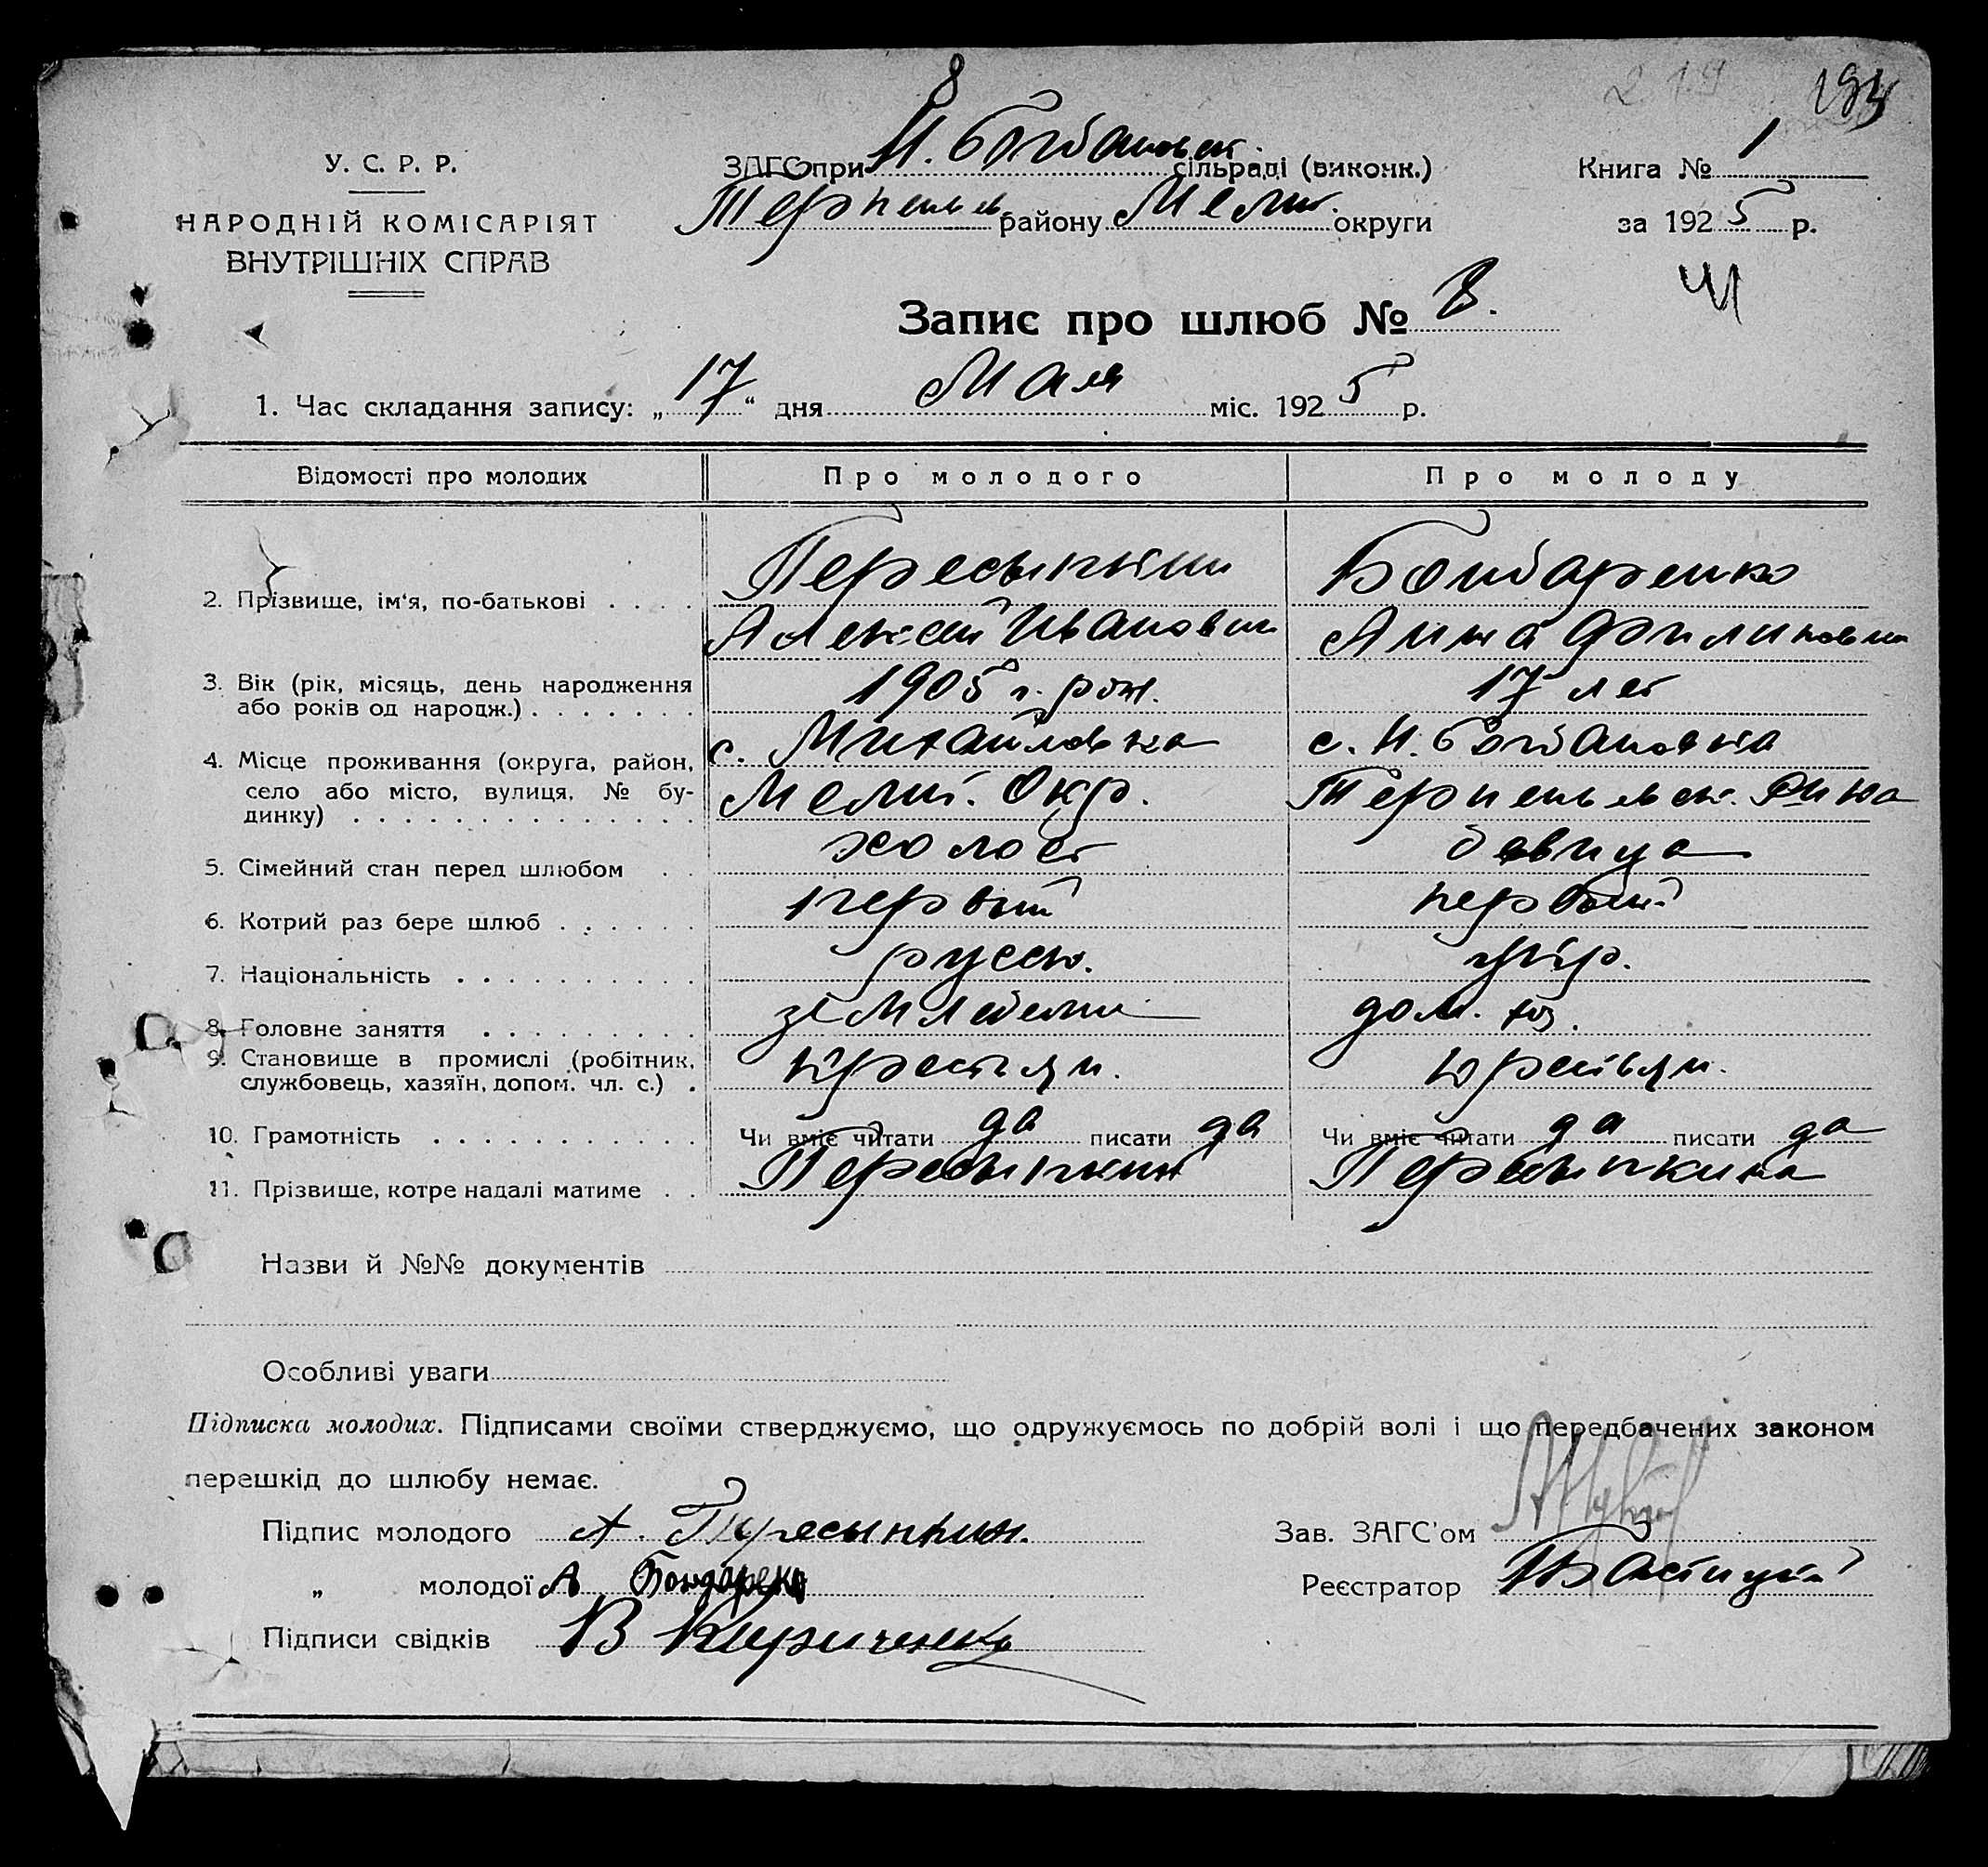 8
219 193
У. С. Р. Р.
НАРОДНІЙ КОМІСАРІЯТ
ВНУТРІШНІХ СПРАВ
ЗАГС при Н. Богдановск. сільраді (виконк.)
Терпеньев. району Мелит. округи
Книга № 1
за 1925 р.
Запис про шлюб № 8.
1. Час складання запису: „17“ дня Мая міс. 1925 р.
Відомості про молодих Про молодого Про молоду
2. Прізвище, ім'я, по-батькові . . . . Пересыпкин Бондаренко
Алексей Иванович Анна Филиповна
3. Вік (рік, місяць, день народження або років од народж.) . . . . . . . 1905 г. рож. 17 лет
4. Місце проживання (округа, район, село або місто, вулиця, № будинку) . . . . . . . . . . . . . . с. Михайловка с. Н. Богдановка
Мелит. Окр. Терпеньевск. Р-на
5. Сімейний стан перед шлюбом . . холост девица
6. Котрий раз бере шлюб . . . . . . первый первый
7. Національність . . . . . . . . . . русск. укр.
8. Головне заняття . . . . . . . . . земледелие дом. хоз.
9. Становище в промислі (робітник, службовець, хазяїн, допом. чл. с.) . крестьян. крестьян.
10. Грамотність . . . . . . . . . . . Чи вміє читати да писати да Чи вміє читати да писати да
11. Прізвище, котре надалі матиме . . Пересыпкин Пересыпкина
Назви й №№ документів
Особливі уваги
Підписка молодих. Підписами своїми стверджуємо, що одружуємось по добрій волі і що передбачених законом
перешкід до шлюбу немає.
Підпис молодого А. Пересыпкин. Зав. ЗАГС'ом
„ молодої А Бондарено Реєстратор
Підписи свідків В Кириченко